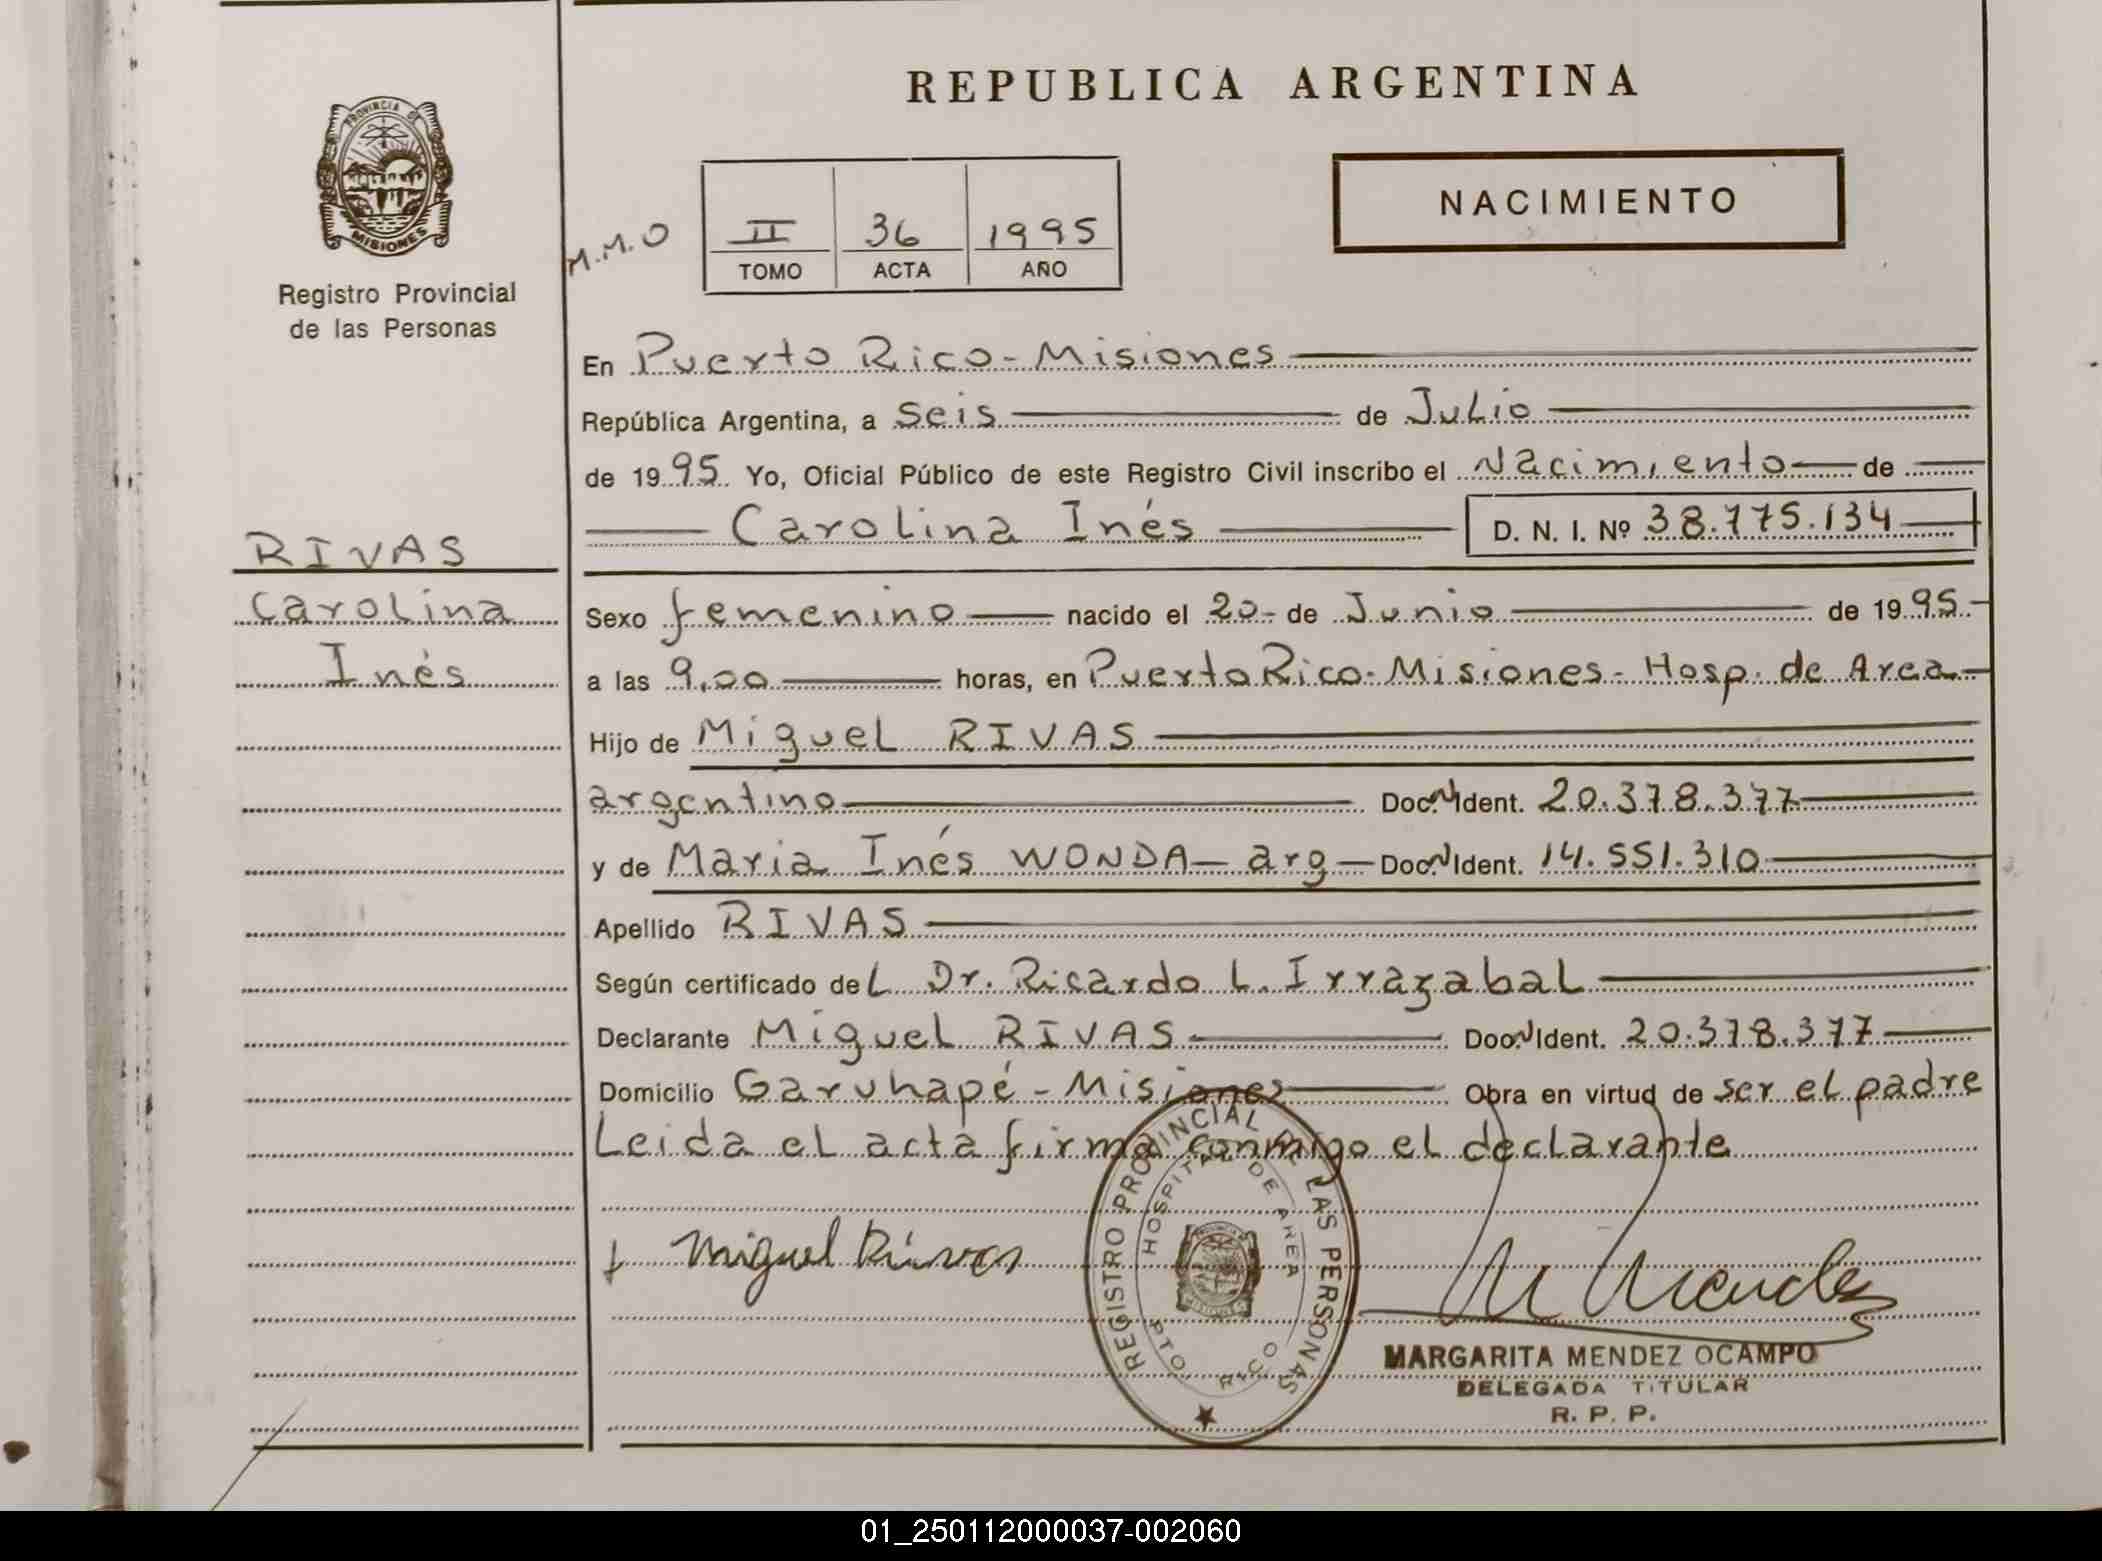 REPUBLICA ARGENTINA
PROVINCIA DE
MISIONES
Registro Provincial
de las Personas
NACIMIENTO
M.M.O
II 36 1995
TOMO ACTA AÑO
En Puerto Rico - Misiones
República Argentina, a seis de Julio
de 1995. Yo, Oficial Público de este Registro Civil inscribo el Nacimiento de
Carolina Inés D. N. I. Nº 38.775.134
RIVAS
Carolina
Inés
Sexo femenino nacido el 20- de Junio de 1995.-
a las 9.00 horas, en Puerto Rico - Misiones - Hosp. de Area -
Hijo de Miguel RIVAS
argentino Doc. Ident. 20.378.377
y de Maria Inés WONDA - arg - Doc. Ident. 14.551.310
Apellido RIVAS
Según certificado del Dr. Ricardo L. Irrazabal
Declarante Miguel RIVAS Doc. Ident. 20.378.377
Domicilio Garuhapé - Misiones Obra en virtud de ser el padre
Leida el acta firma conmigo el declarante
Miguel Rivas
M Mendez
REGISTRO PROVINCIAL DE LAS PERSONAS
HOSPITAL DE AREA
PTO. RICO
PROVINCIA DE
MISIONES
MARGARITA MENDEZ OCAMPO
DELEGADA TITULAR
R. P. P.
01_250112000037-002060